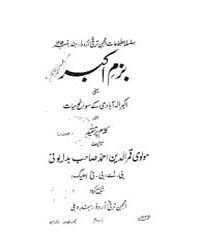 سلسلہ مطبوعات انجمن ترقی اردو (ہند) نمبر
بزم اکبر
یعنی
اکبر الہ آبادی کے سوانح حیات
اور
کلام پر تبصرہ
مولوی قمر الدین احمد صاحب بدایونی
بی۔ اے، بی۔ ٹی (علیگ)
شائع کردہ
انجمن ترقی اردو (ہند) دہلی